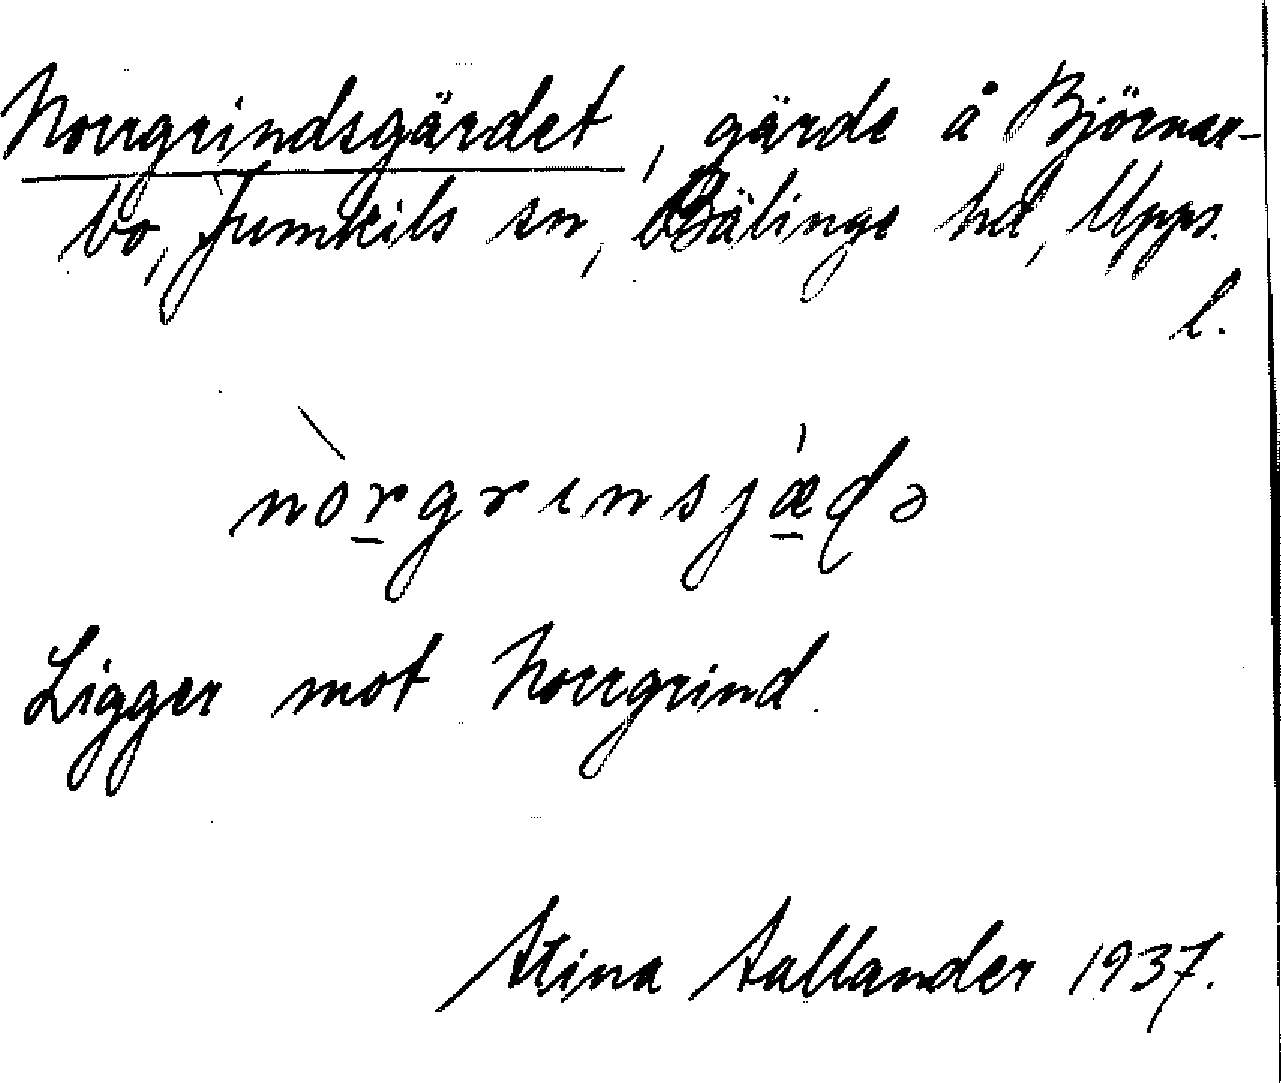 Norrgrindsgärdet, gärde å Björner-
bo, Jumkils sn, Bälinge hd, Upps.
l.
nòrgrɩnsjæ̀ɖə
Ligger mot Norrgrind.
Stina Sallander 1937.